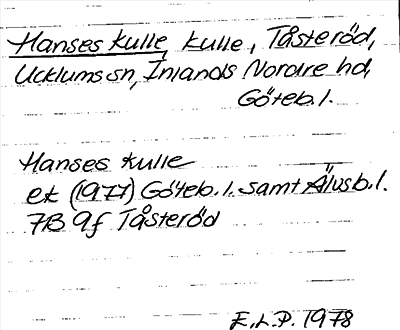 Hanses kulle, kulle, Tåsteröd,
Ucklums sn, Inlands Nordre hd,
Göteb. l.
Hanses kulle
ek (1977) Göteb. l. samt Älvsb. l.
7B 9f Tåsteröd
E.L.P. 1978